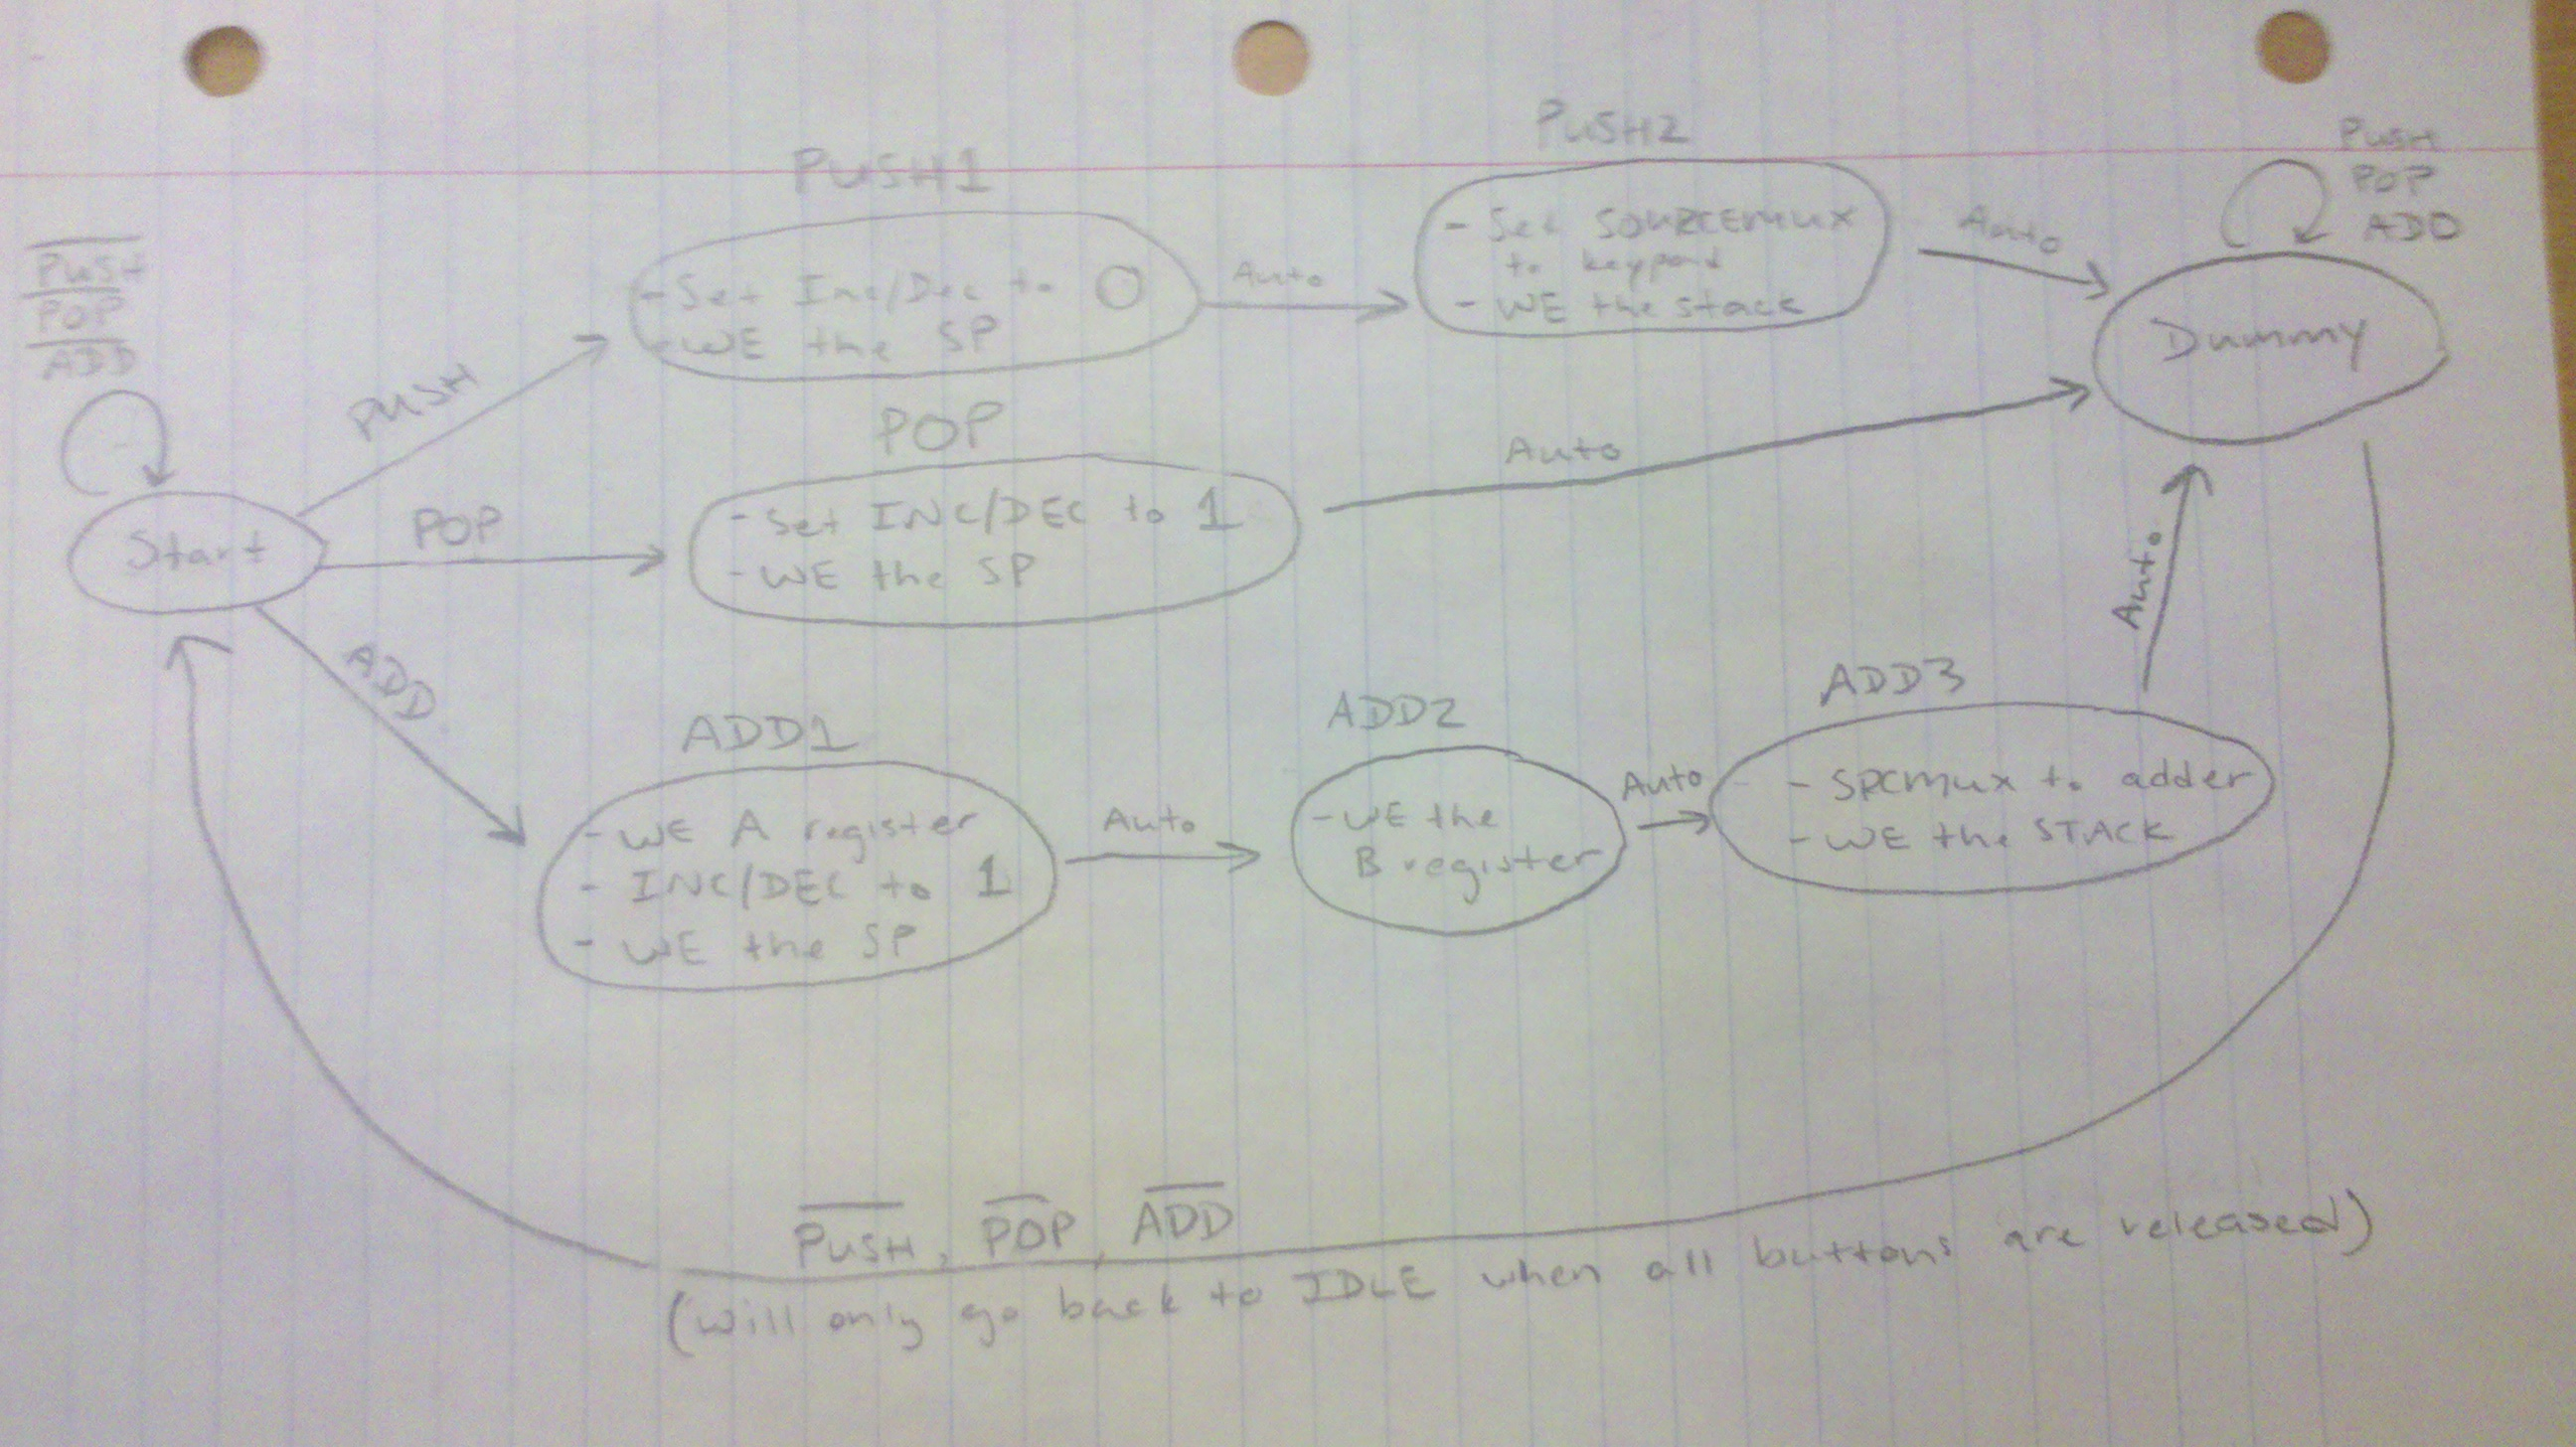 PUSH
POP
ADD
Start
PUSH
POP
ADD
PUSH1
- Set Inc/Dec to 0
- WE the SP
Auto
PUSH2
- Set SOURCEMUX
to keypad
- WE the stack
Auto
PUSH
POP
ADD
Dummy
POP
- Set INC/DEC to 1
- WE the SP
Auto
ADD1
- WE A register
- INC/DEC to 1
- WE the SP
Auto
ADD2
- WE the
B register
Auto
ADD3
- SRCMUX to adder
- WE the STACK
Auto
PUSH, POP, ADD
(will only go back to IDLE when all buttons are released)